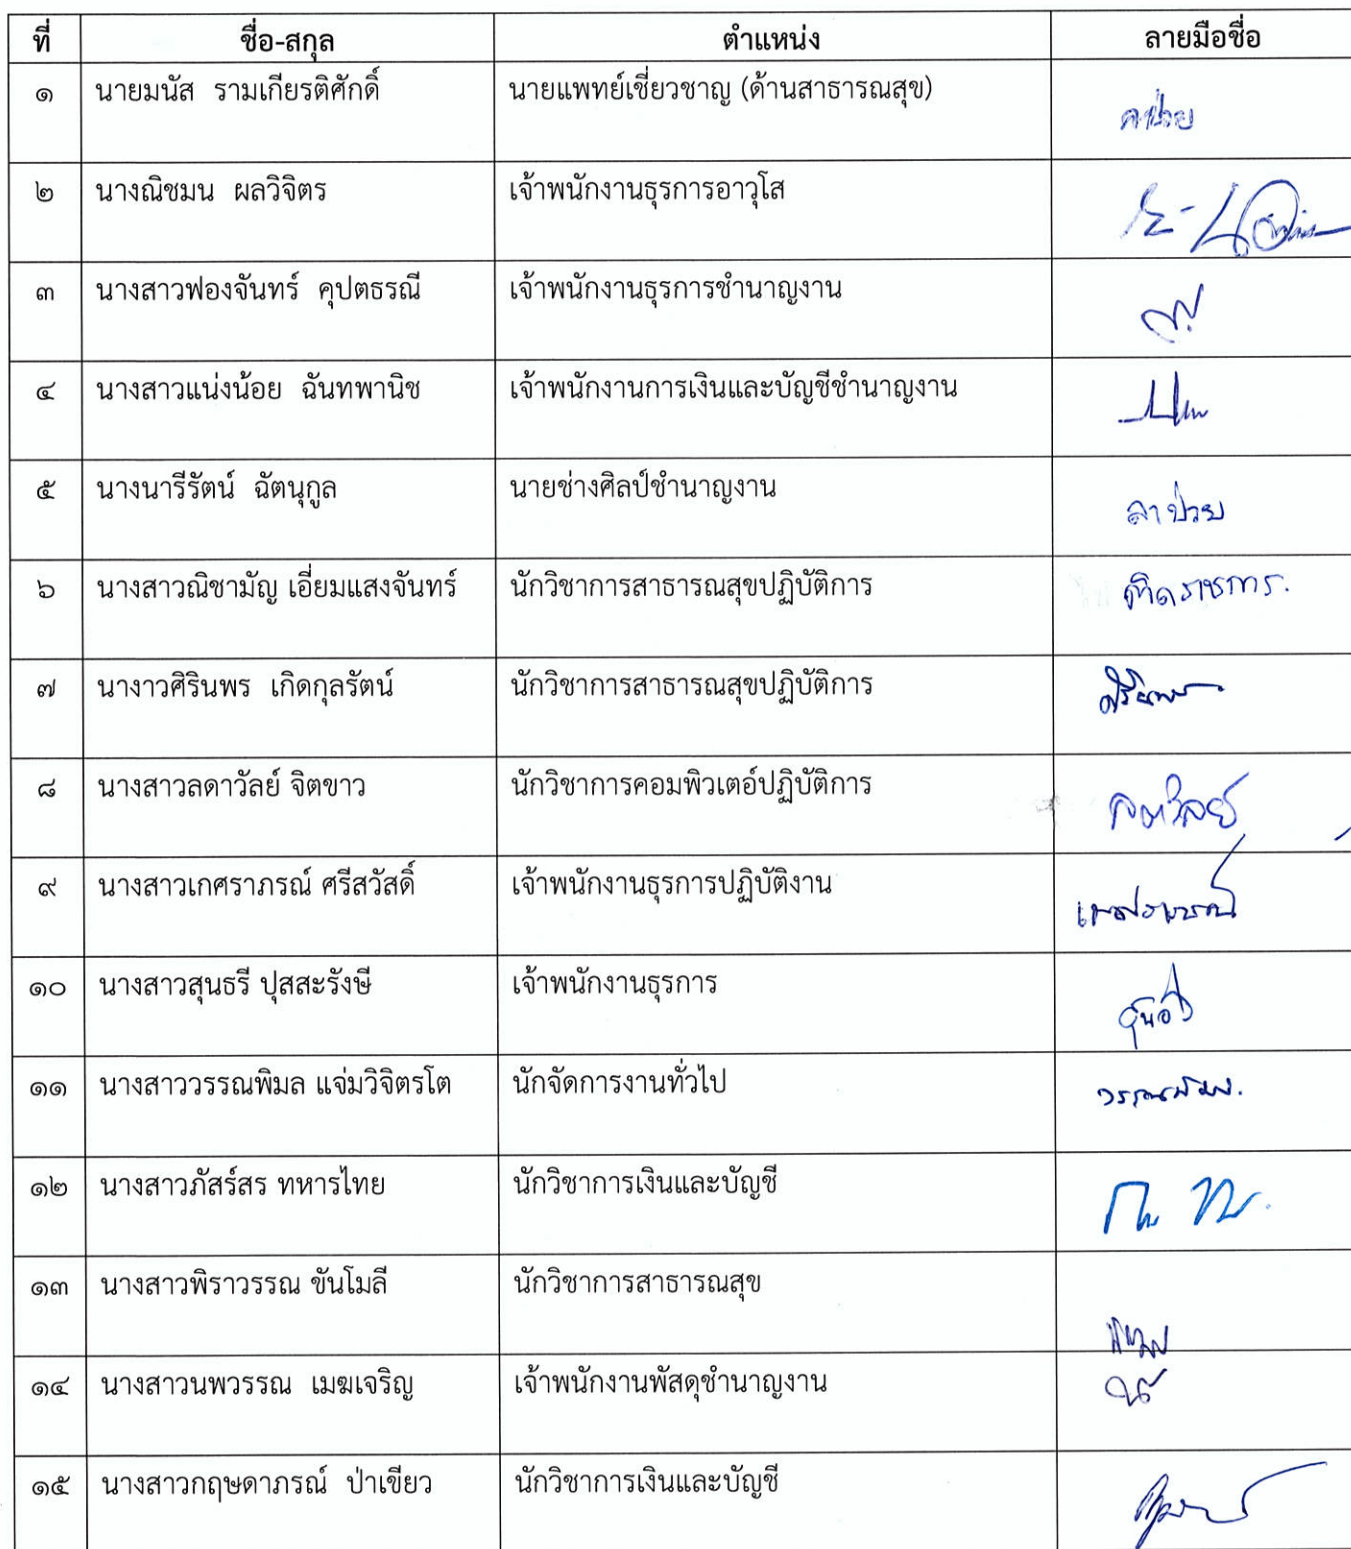 ที่ ชื่อ-สกุล ตำแหน่ง ลายมือชื่อ
๑ นายมนัส รามเกียรติศักดิ์ นายแพทย์เชี่ยวชาญ (ด้านสาธารณสุข) ลาป่วย
๒ นางณิชมน ผลวิจิตร เจ้าพนักงานธุรการอาวุโส
๓ นางสาวฟองจันทร์ คุปตธรณี เจ้าพนักงานธุรการชำนาญงาน
๔ นางสาวแน่งน้อย ฉันทพานิช เจ้าพนักงานการเงินและบัญชีชำนาญงาน
๕ นางนารีรัตน์ ฉัตนุกูล นายช่างศิลป์ชำนาญงาน ลาป่วย
๖ นางสาวณิชามัญ เอี่ยมแสงจันทร์ นักวิชาการสาธารณสุขปฏิบัติการ ติดราชการ.
๗ นางาวศิรินพร เกิดกุลรัตน์ นักวิชาการสาธารณสุขปฏิบัติการ ศิรินพร
๘ นางสาวลดาวัลย์ จิตขาว นักวิชาการคอมพิวเตอ์ปฏิบัติการ ลดาวัลย์
๙ นางสาวเกศราภรณ์ ศรีสวัสดิ์ เจ้าพนักงานธุรการปฏิบัติงาน เกศราภรณ์
๑๐ นางสาวสุนธรี ปุสสะรังษี เจ้าพนักงานธุรการ
๑๑ นางสาววรรณพิมล แจ่มวิจิตรโต นักจัดการงานทั่วไป วรรณพิมล.
๑๒ นางสาวภัสร์สร ทหารไทย นักวิชาการเงินและบัญชี
๑๓ นางสาวพิราวรรณ ขันโมลี นักวิชาการสาธารณสุข
๑๔ นางสาวนพวรรณ เมฆเจริญ เจ้าพนักงานพัสดุชำนาญงาน
๑๕ นางสาวกฤษดาภรณ์ ป่าเขียว นักวิชาการเงินและบัญชี